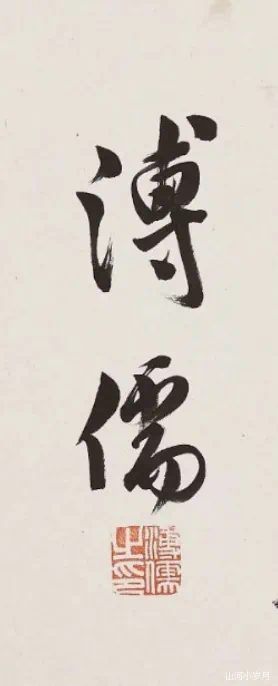 溥儒
溥儒之印
山河小岁月